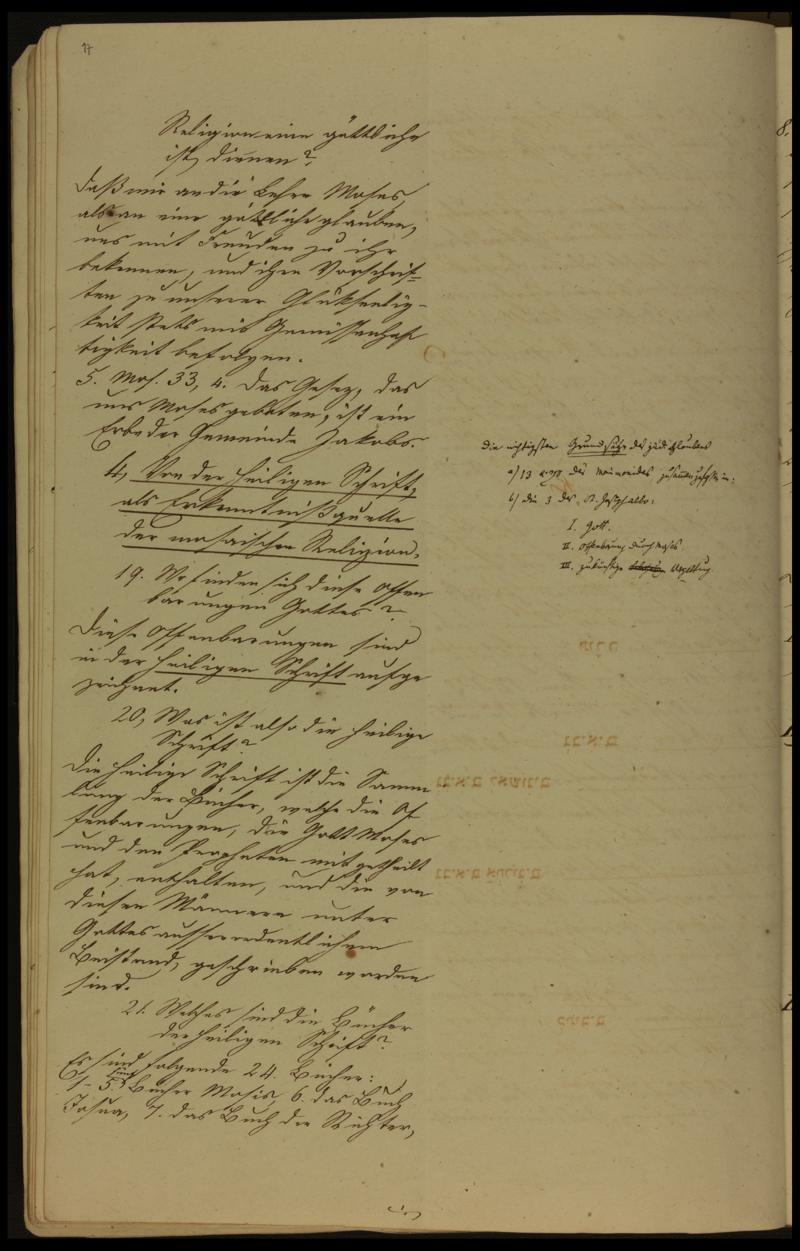 17
Religion eine göttliche
ist, dienen?
Daß wir an die Lehre Moses,
als an eine göttliche glauben,
uns mit Freuden zu ihr
bekennen, und ihre Vorschrif=
ten zu unserer Glükseelig-
keit stets mit Gewissenhaf
tigkeit befolgen.
5. Mos. 33, 4. Das Gesez, das
uns Moses geboten, ist ein
Erbe der Gemeinde Jakobs.
4, Von der heiligen Schrift,
als Erkenntnißquelle
der mosaischen Religion.
19. Wo finden sich diese Offen
barungen Gottes?
Diese Offenbarungen sind
in der heiligen Schrift aufge
zeichnet.
20, Was ist also die heilige
Schrift?
Die heilige Schrift ist die Samm
lung der Bücher, welche die Of
fenbarungen, die Gott Moses
und den Propheten mitgetheilt
hat, enthalten, und die von
diesen Männern unter
Gottes ausserordentlichem
Beistand, geschrieben worden
sind.
21. Welches sind die Bücher
der heiligen Schrift?
Es sind folgende 24. Bücher:
1- 5. fünf Bücher Mosis, 6. das Buch
Josua, 7. das Buch der Richter,
Die wichtigsten Grundsätze des jüd. Glaubens
a) 13 עיקרים des Maimonides zusammengefaßt in:
b) die 3 des R. Joseph Albo:
I. Gott.
II. Offenbarung durch Moses.
III. zukünftige Vergeltung